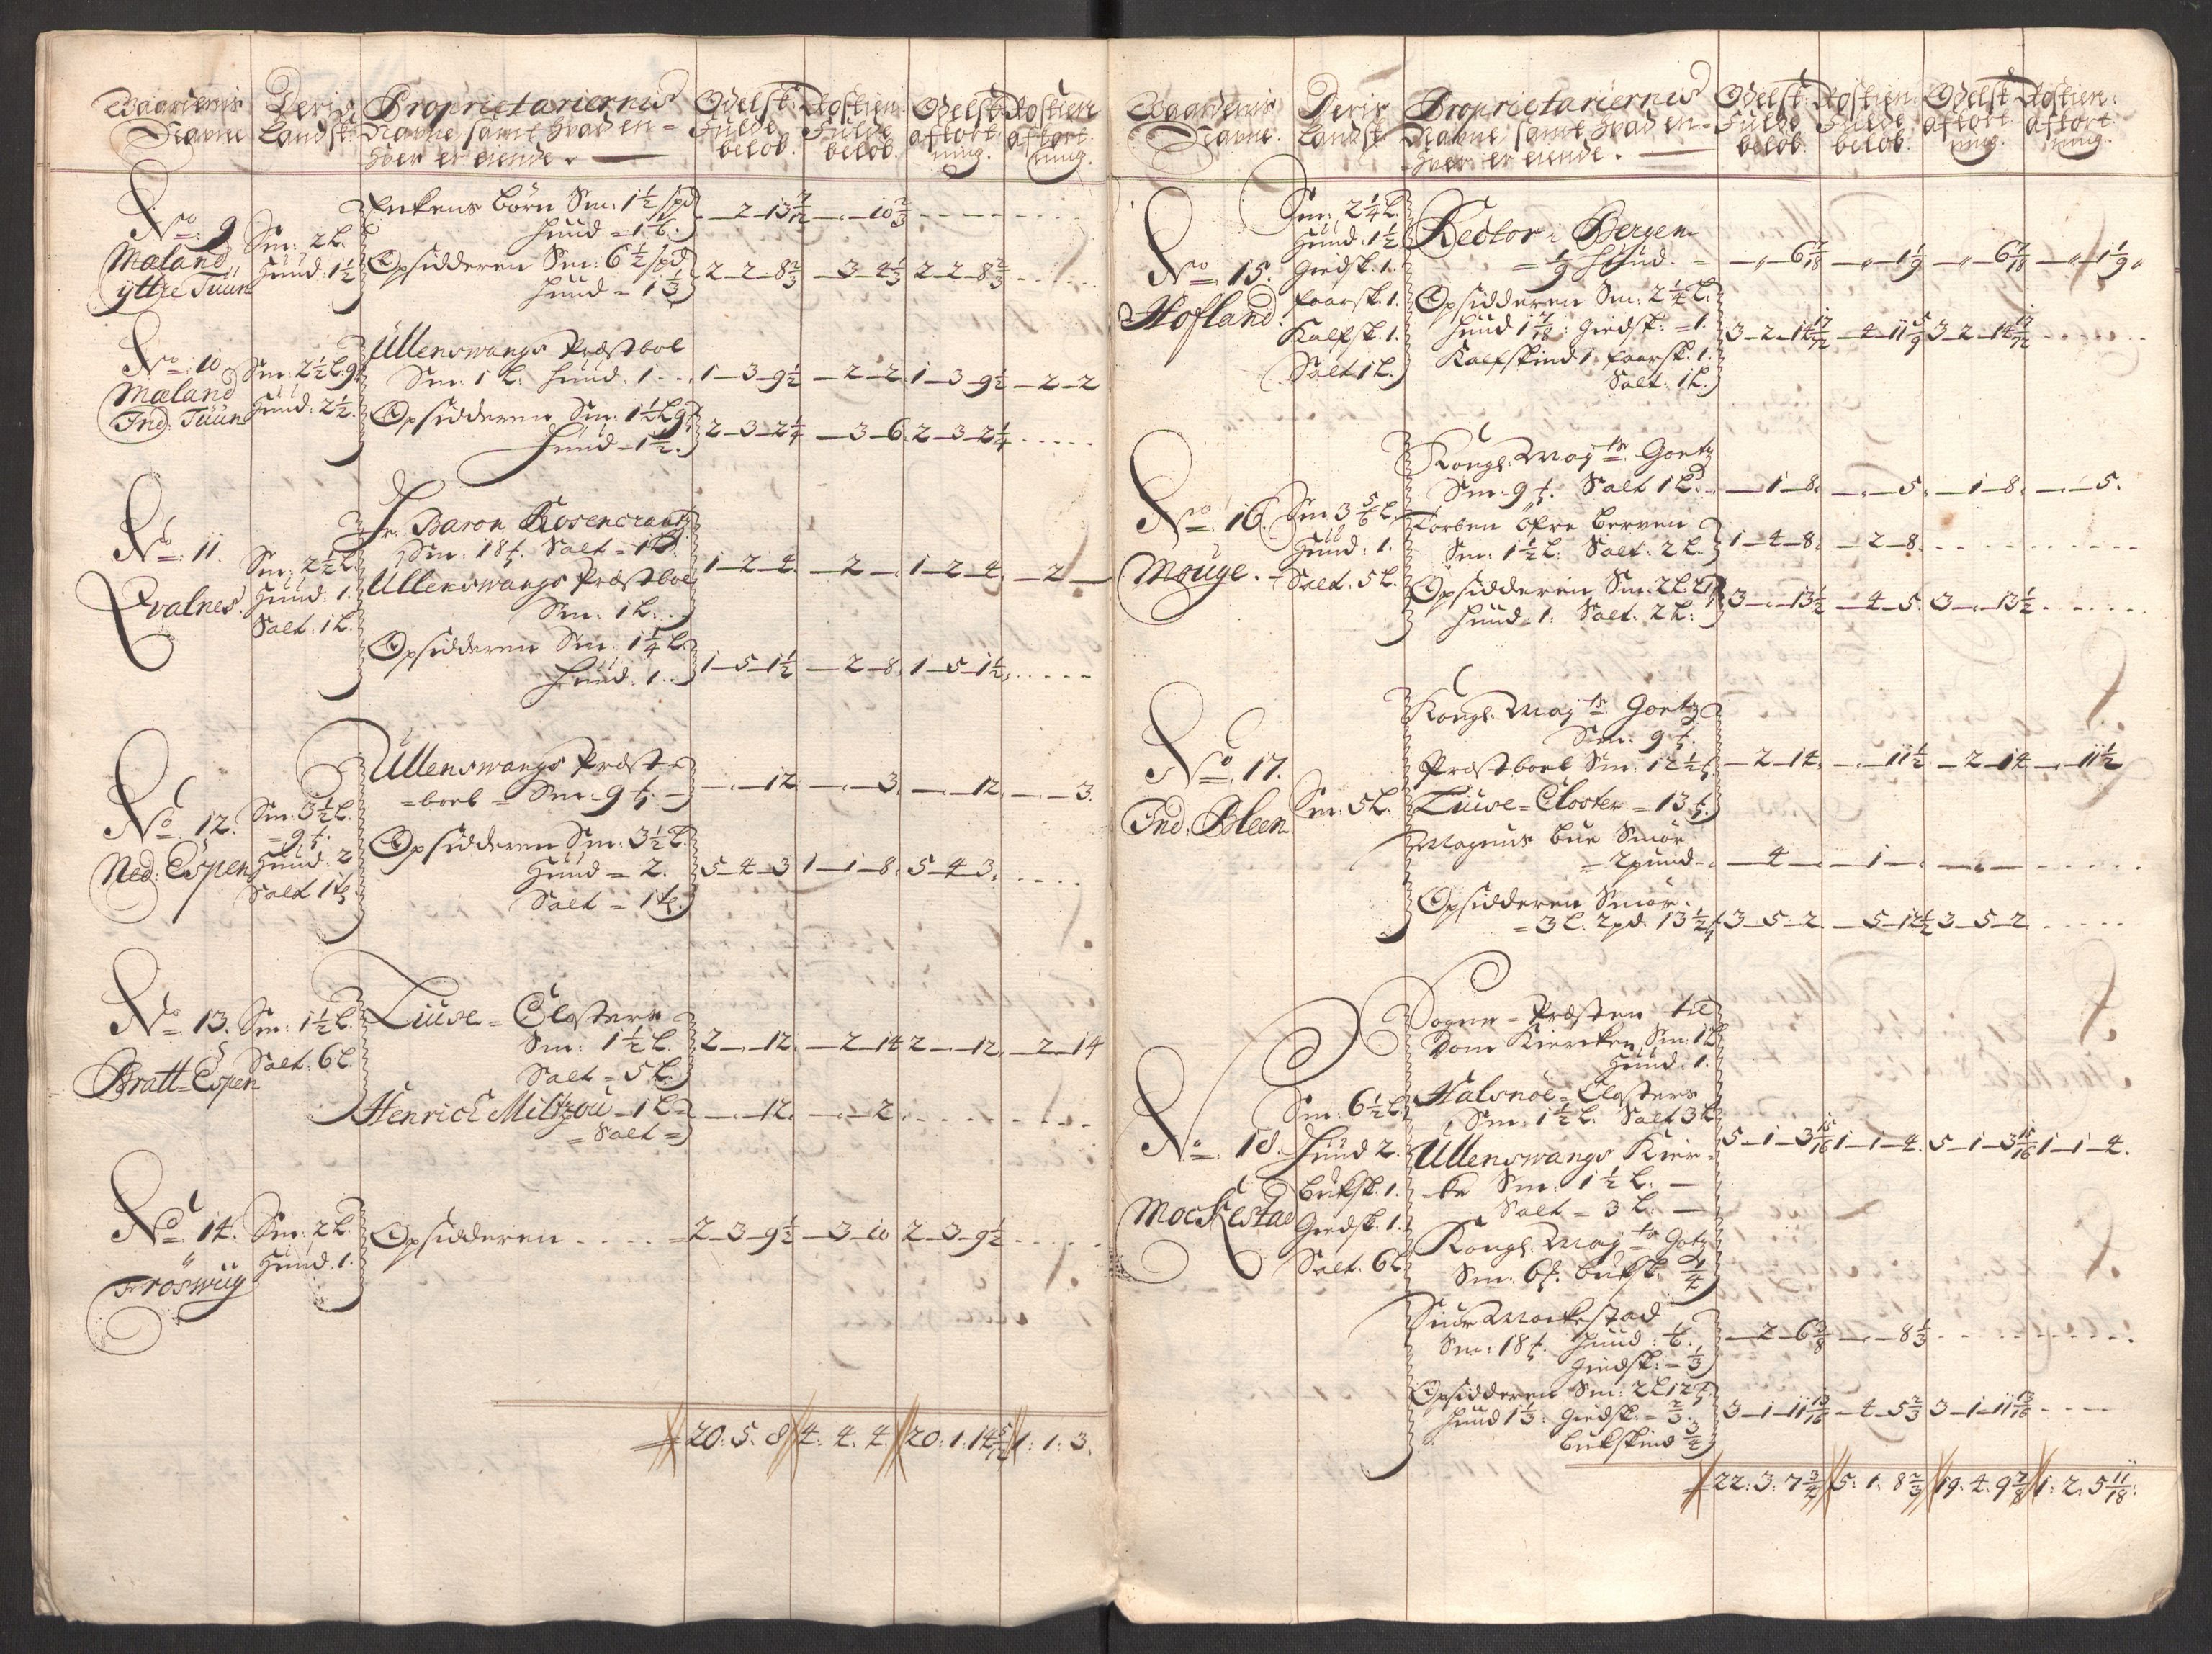 Gaardernis Navne
Deris Landsk:
Proprietariernis Navne samt hvad en-hver er eiende.
Odelsk: fulde beløb.
Rostien: fulde beløb.
Odelsk afkort-ning.
Rostien afkort-ning.
No: 9
Maland
yttre Tuun
Sm: 2 L.
Huud: 1½
Enkens börn Sm: 1½ spd
Huud = 1/6. 2 - 13 7/12 10 2/3
Opsidderen Sm: 6½ spd
Huud = 1⅓ 2 - 2 - 8⅔ 3 - 4⅓ 2 - 2 - 8⅔
No: 10
Maland
Ind: Tuun
Sm: 2½ L. 9
Huud: 2½.
Ullenswangs Præstbol
Sm: 1 L. Huud. 1 1 - 3 - 9½ 2 - 2 1 - 3 - 9½ 2 - 2
Opsidderen Sm: 1½ L 9
Huud - 1½. 2 - 3 - 2¼ 3 - 6. 2 - 3 - 2¼
No: 11.
Qvalnes.
Sm: 2½ L.
Huud: 1.
Salt: 1 L.
Hr. Baron Rosencrantz
Sm: 18 Salt = 1 L.
Ullenswangs Præstbol
Sm: 1 L. 1 - 2 - 4 2 1 - 2 - 4 2
Opsidderen Sm: 1¼ L.
Huud. 1. 1 - 5 - 1½ 2 - 8. 1 - 5 - 1½
No 12.
Ned: Espen
Sm: 3½ L.
= 9
Huud: 2
Salt 1
Ullenswangs Præst-
=boel = Sm: 9 12 3. 12. 3.
Opsidderen Sm: 3½ L.
Huud = 2.
Salt = 1 5 - 4 - 3 1 - 1 - 8. 5 - 4 - 3.
No 13.
Bratt-Espen
Sm: 1½ L.
Salt: 6 L.
Liuse = Closters
Sm: 1½ L.
Salt = 5 L. 2 - 12. 2 - 14 2 - 12. 2 - 14
Henrich Miltzou - 1 L
= Salt = 12. 2.
No 14.
Fröswiig
Sm: 2 L.
Huud. 1.
Opsidderen 2 - 3 - 9½ 3 - 10 2 - 3 - 9½
20: 5. 8 4. 4. 4. 20: 1: 14 5/12 1: 1: 3.
Gaardernis Navne.
Deris Landsk
Proprietariernis Navne samt hvad en-hver er eiende.
Odelsk: fulde beløb.
Rostien: fulde beløb.
Odelsk afkort-ning.
Rostien: afkort-ning.
No 15.
Hofland.
Sm: 2¼ L.
Huud: 1½
Giedsk. 1.
faarsk. 1.
Kalfsk. 1.
Salt 1 L.
Rector i Bergen
= 1/9 Huud. = 6 7/18 1 1/9 6 7/18 1 1/9
Opsidderen Sm: 2¼ L.
Huud 1 7/18: Giedsk. = 1.
Kalfskind 1. faarsk. 1.
Salt. 1 L. 3 - 2 - 14 17/72 4 - 11 5/9 3 - 2 - 14 17/72
No: 16.
Mouge.
Sm 3 5/6 L.
Huud: 1.
Salt. 5 L.
Kongl: Mayts Goetz
Sm: 9 Salt 1 L. 1 - 8. 5. 1 - 8. 5.
Torben öfre Berven
Sm: 1½ L. Salt: 2 L. 1 - 4 - 8. 2 - 8.
Opsidderen Sm: 2 L.
Huud. 1: Salt. 2 L. 3 - 13½ 4 - 5. 3 - 13½
No: 17.
Ind: Bleen
Sm: 5 L.
Kongl: Mayts Goetz
Sm: 9
Præstboel Sm: 12½
Liuse = Closter = 13 2 - 14. 11½ 2 - 14 11½
Magnus Bue Smör
= 2 pund 4 1
Opsidderen Smör.
= 3 L. 2 pd. 13½ 3 - 5 - 2. 5 - 12½ 3 - 5 - 2.
No 18.
Mockestad
Sm: 6½ L.
Huud 2.
Buksk. 1.
Giedsk. 1.
Salt. 6 L
Sogne = Præsten til
Dom Kiercken Sm: 1 L
Huud: 1.
Halsnöe = Closters
Sm: 1½ L. Salt 3 L
Ullenswangs Kier-
-ke Sm: 1½ L.
Salt = 3 L: 5 - 1 - 3 15/16 1 - 1 - 4. 5 - 1 - 3 15/16 1 - 1 - 4.
Kongl: Mayts Gotz
Sm: 6 Buksk: ¼
Siur Mockestad
Sm: 18 Huud: 1/6.
Giedsk: = ⅓ 2 - 6 3/8 8⅓
Opsidderen Sm: 2 L 12
Huud 1⅓: Giedsk: = ⅔.
Bukskind ¾ 3 - 1 - 11 13/16 4 - 5⅔ 3 - 1 - 11 13/16
22: 3: 7¾ 5: 1. 8⅔ 19. 4. 9 7/8 1: 2: 5 11/18.